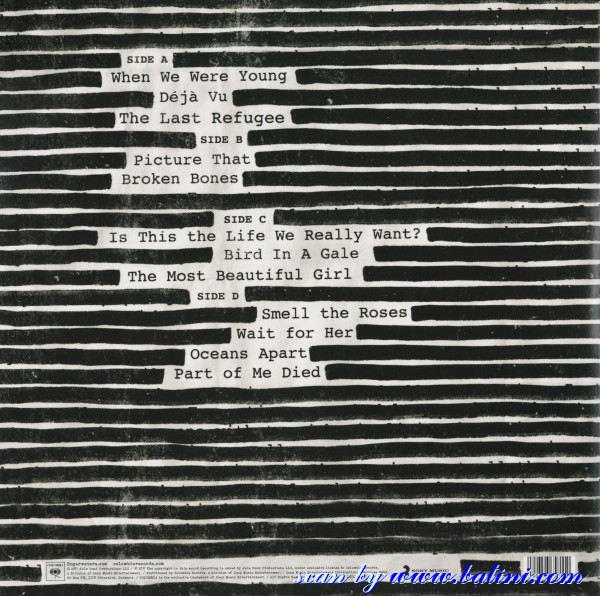 SIDE A
When We Were Young
Déjà Vu
The Last Refugee
SIDE B
Picture That
Broken Bones
SIDE C
Is This the Life We Really Want?
Bird In A Gale
The Most Beautiful Girl
SIDE D
Smell the Roses
Wait for Her
Oceans Apart
Part of Me Died
columbiarecords.com
SONY MUSIC
scan by www.batini.com